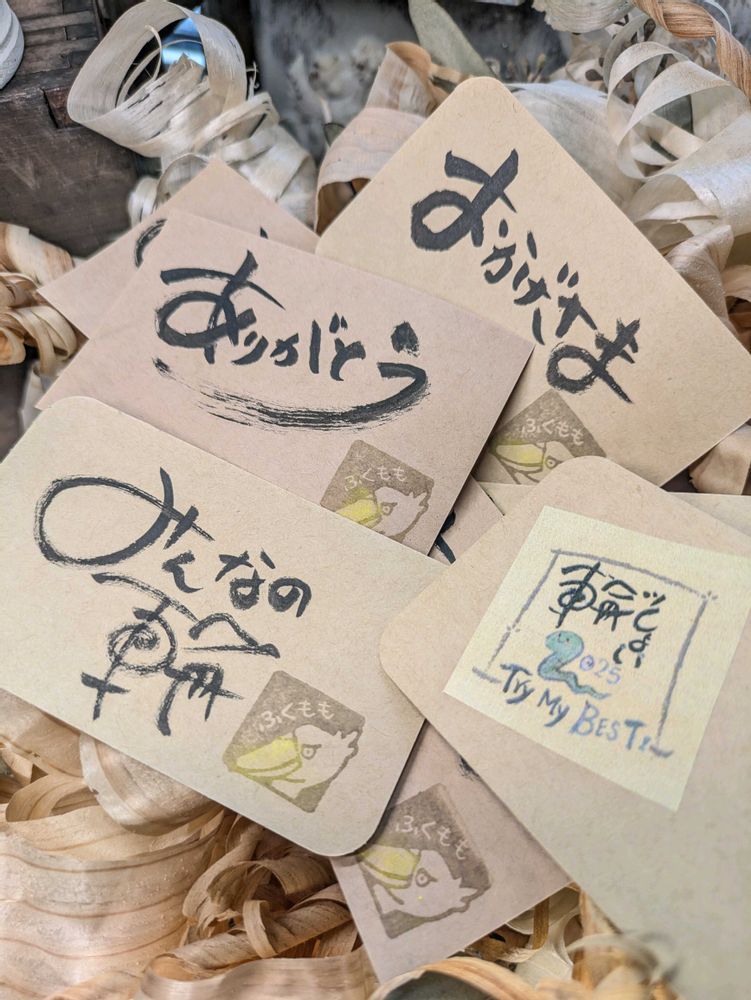 おかげさま
ふくもも
ありがとう
ふくもも
みんなの
輪
ふくもも
輪
2025
Try My BEST!
ふくもも